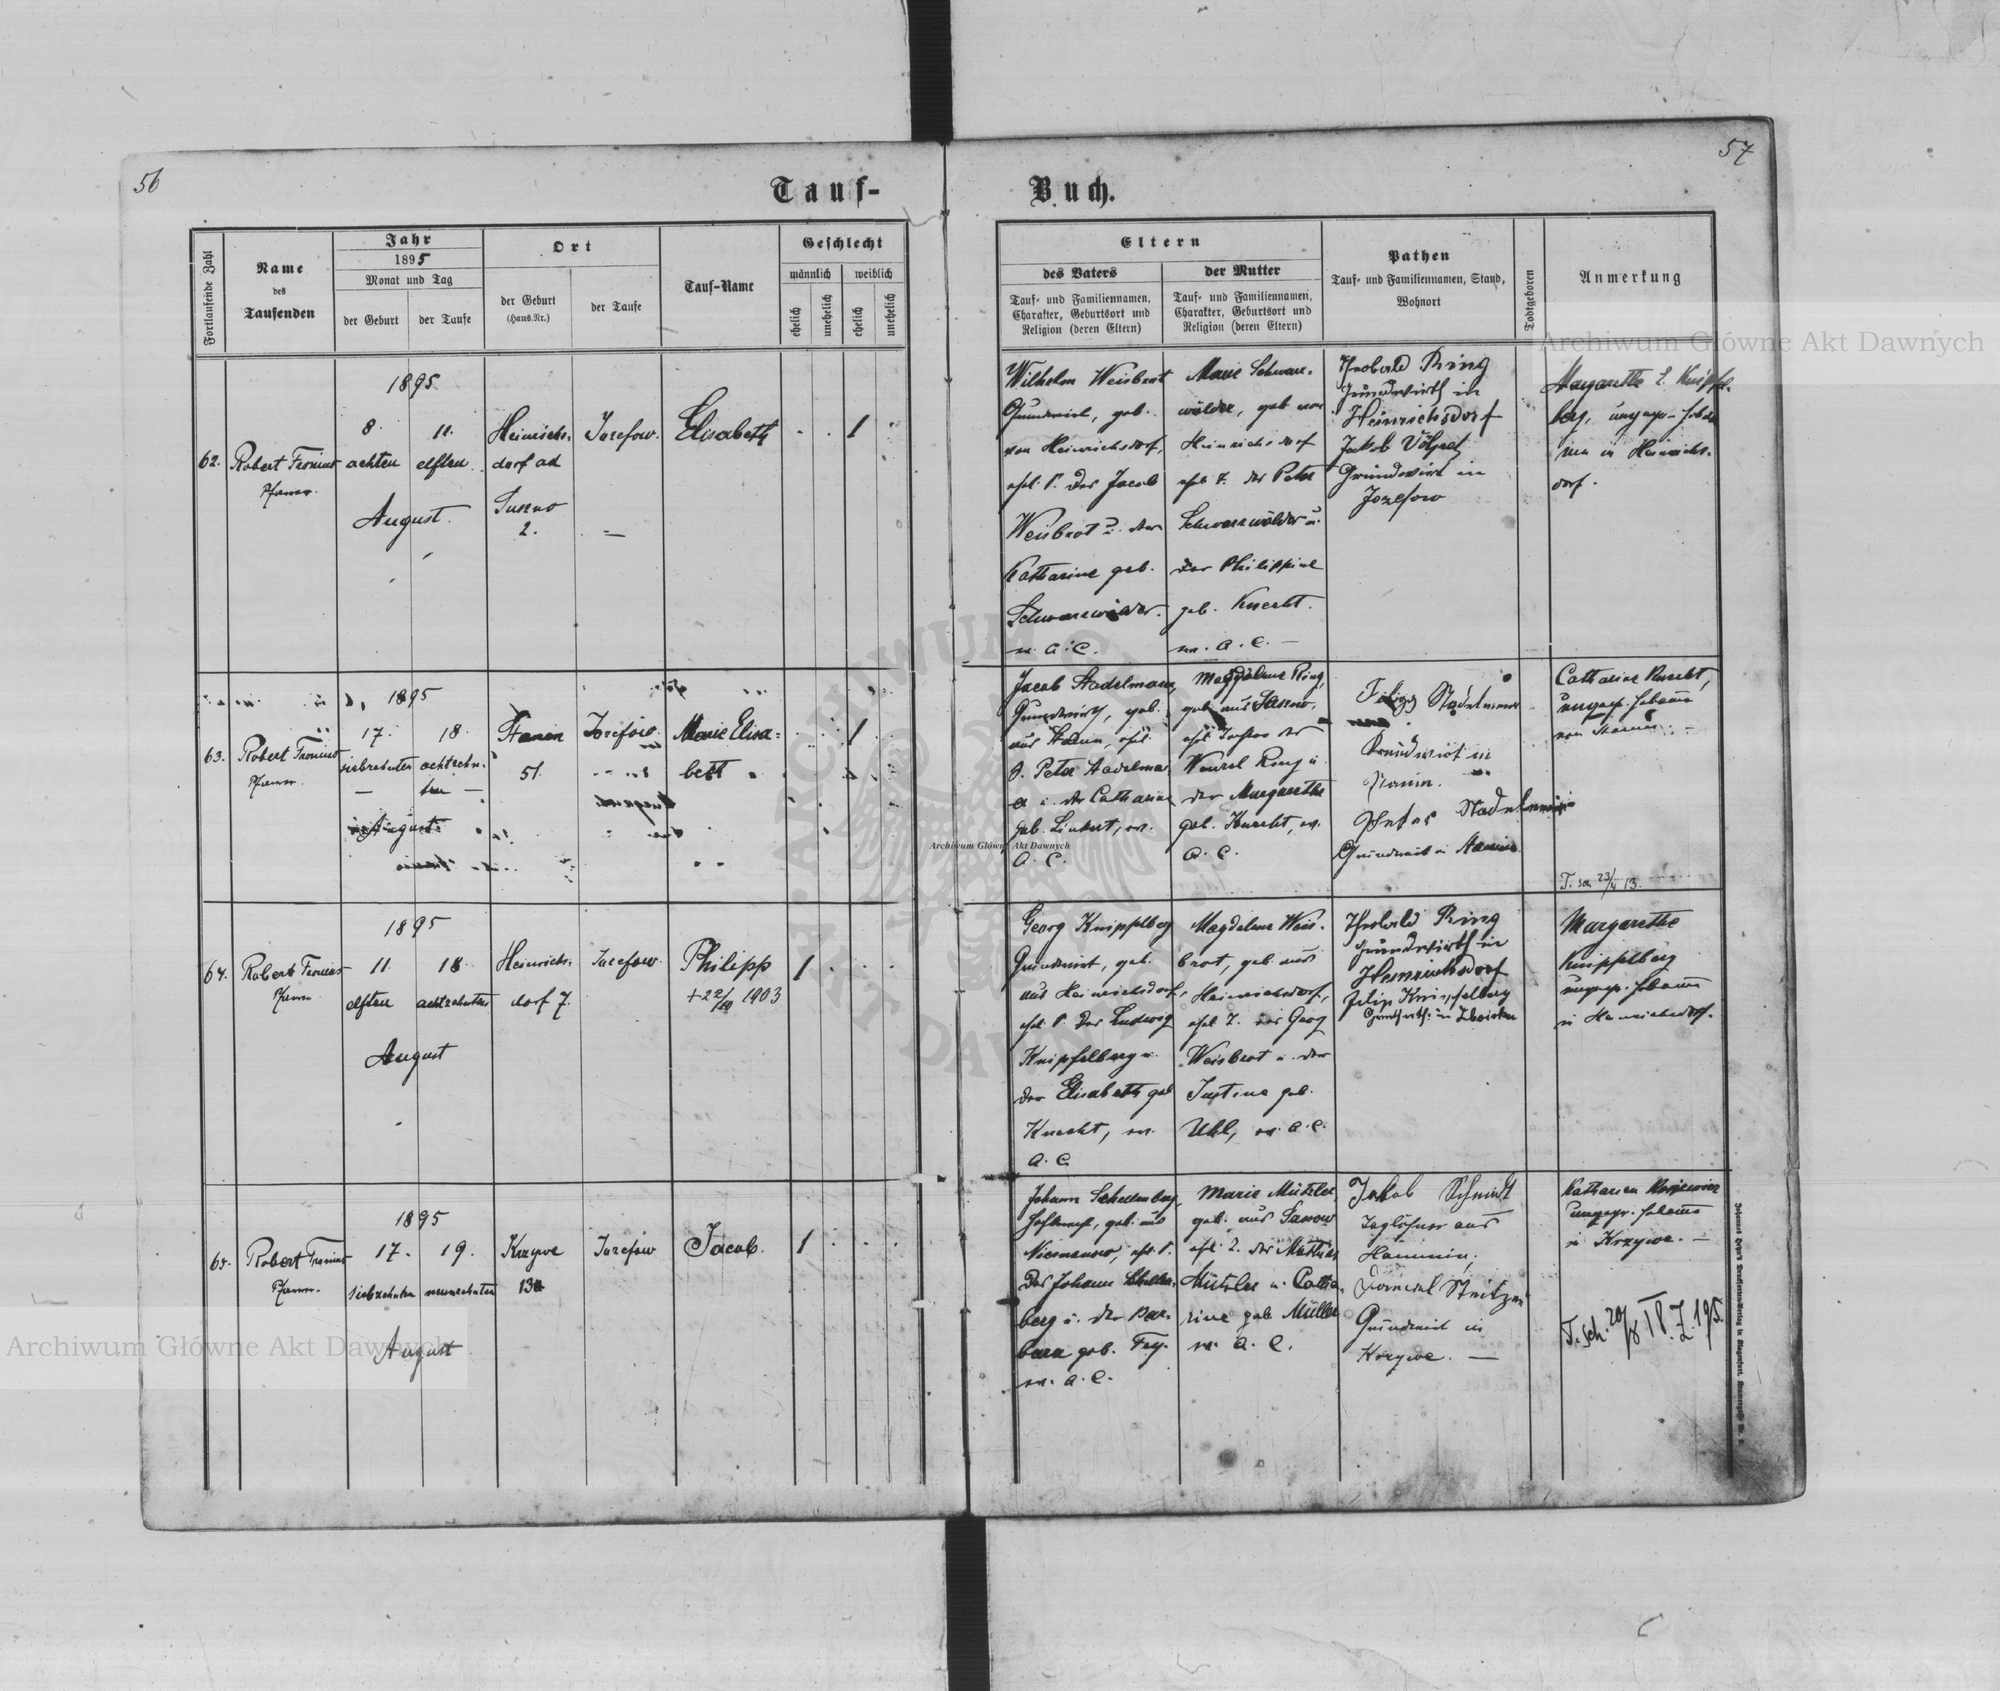 56
57
Tauf-
Buch.
Fortlaufende Zahl
Name
des
Taufenden
Jahr
1895
Monat und Tag
der Geburt
der Taufe
Ort
der Geburt
(Haus-Nr.)
der Taufe
Tauf-Name
Geschlecht
männlich
weiblich
ehelich
unehelich
ehelich
unehelich
Eltern
des Vaters
der Mutter
Tauf- und Familiennamen,
Charakter, Geburtsort und
Religion (deren Eltern)
Tauf- und Familiennamen,
Charakter, Geburtsort und
Religion (deren Eltern)
Pathen
Tauf- und Familiennamen, Stand,
Wohnort
Todtgeboren
Anmerkung
62.
Robert Fronius
Pfarrer.
1895.
8.
achten
11.
elften
August.
Heinrichs-
dorf ad
2.
Josefow.
Elisabeth
1
Wilhelm Weisbrot
Grundwirt, geb.
von Heinrichsdorf,
ehel. S. des Jacob
Weisbrot u. der
Katharine geb.
Schwarzwälder.
ev. A. C.
Marie Schwarz-
wälder, geb. von
Heinrichsdorf
ehel. T. des Peter
Schwarzwälder u.
der Philippine
geb. Knecht.
ev. A. C. —
Theobald Ring
Grundwirth in
Heinrichsdorf
Jakob
Grundwirt in
Jozefow
Margaretha
berg, ungepr. Hebam
min in Heinrichs-
dorf.
63.
Robert Fronius
Pfarrer.
1895
17.
siebzehnten
18.
achtzehn-
ten —
August
Stanin
51.
Josefow.
Marie Elisa-
beth
1
Jacob Stadelmann,
Grundwirt, geb.
aus Stanin, ehel.
S. Peter Stadelma-
u. der Catharine
geb. Linkert, ev.
A. C.
Magdalena Ring,
geb. aus
ehel. Tochter des
Wenzel Ring u.
der Margarethe
geb. Knecht, ev.
A. C.
Grundwirt in
Stanin.
Grundwirt in Stanin.
Catharine Knecht,
ungepr. Hebamme
von Stanin. —
T. sch. 23/4 13.
64.
Robert Fronius
Pfarrer
1895
11.
elften
18.
achtzehnten
August
Heinrichs-
dorf 7.
Josefow.
Philipp
+ 22/10 1903
1
Georg Knipfelberg
Grundwirt, geb.
aus Heinrichsdorf,
ehel. S. des Ludwig
Knipfelberg u.
der Elisabeth geb.
Knecht, ev.
A. C.
Magdalena Weis-
brot, geb. aus
Heinrichsdorf,
ehel. T. des Georg
Weisbrot u. der
Justine geb.
Uhl, ev. A. C.
Theobald Ring
Grundwirth in
Heinrichsdorf
Filip Knipfelberg
Margarethe
Knipfelberg
ungepr. Hebamme
in Heinrichsdorf.
65.
Robert Fronius
Pfarrer.
1895
17.
siebzehnten
19.
neunzehnten
August
Krzywe
Josefow
Jacob.
1
Johann Schellenberg,
geb. aus
ehel. S.
des Johann Schellen-
berg u. der Bar-
bara geb. Fey.
ev. A. C.
Marie Mützler
geb. aus Sasow
ehel. T. des Mathias
Mützler u. Catha-
rine geb. Müller
ev. A. C.
Jakob Schmidt
Taglöhner aus
Hanunin,
Grundwirt in
Krzywe. —
Katharina
ungepr. Hebamme
in Krzywe. —
T. sch. 20/8
Archiwum Główne Akt Dawnych
Archiwum Główne Akt Dawnych
Archiwum Główne Akt Dawnych